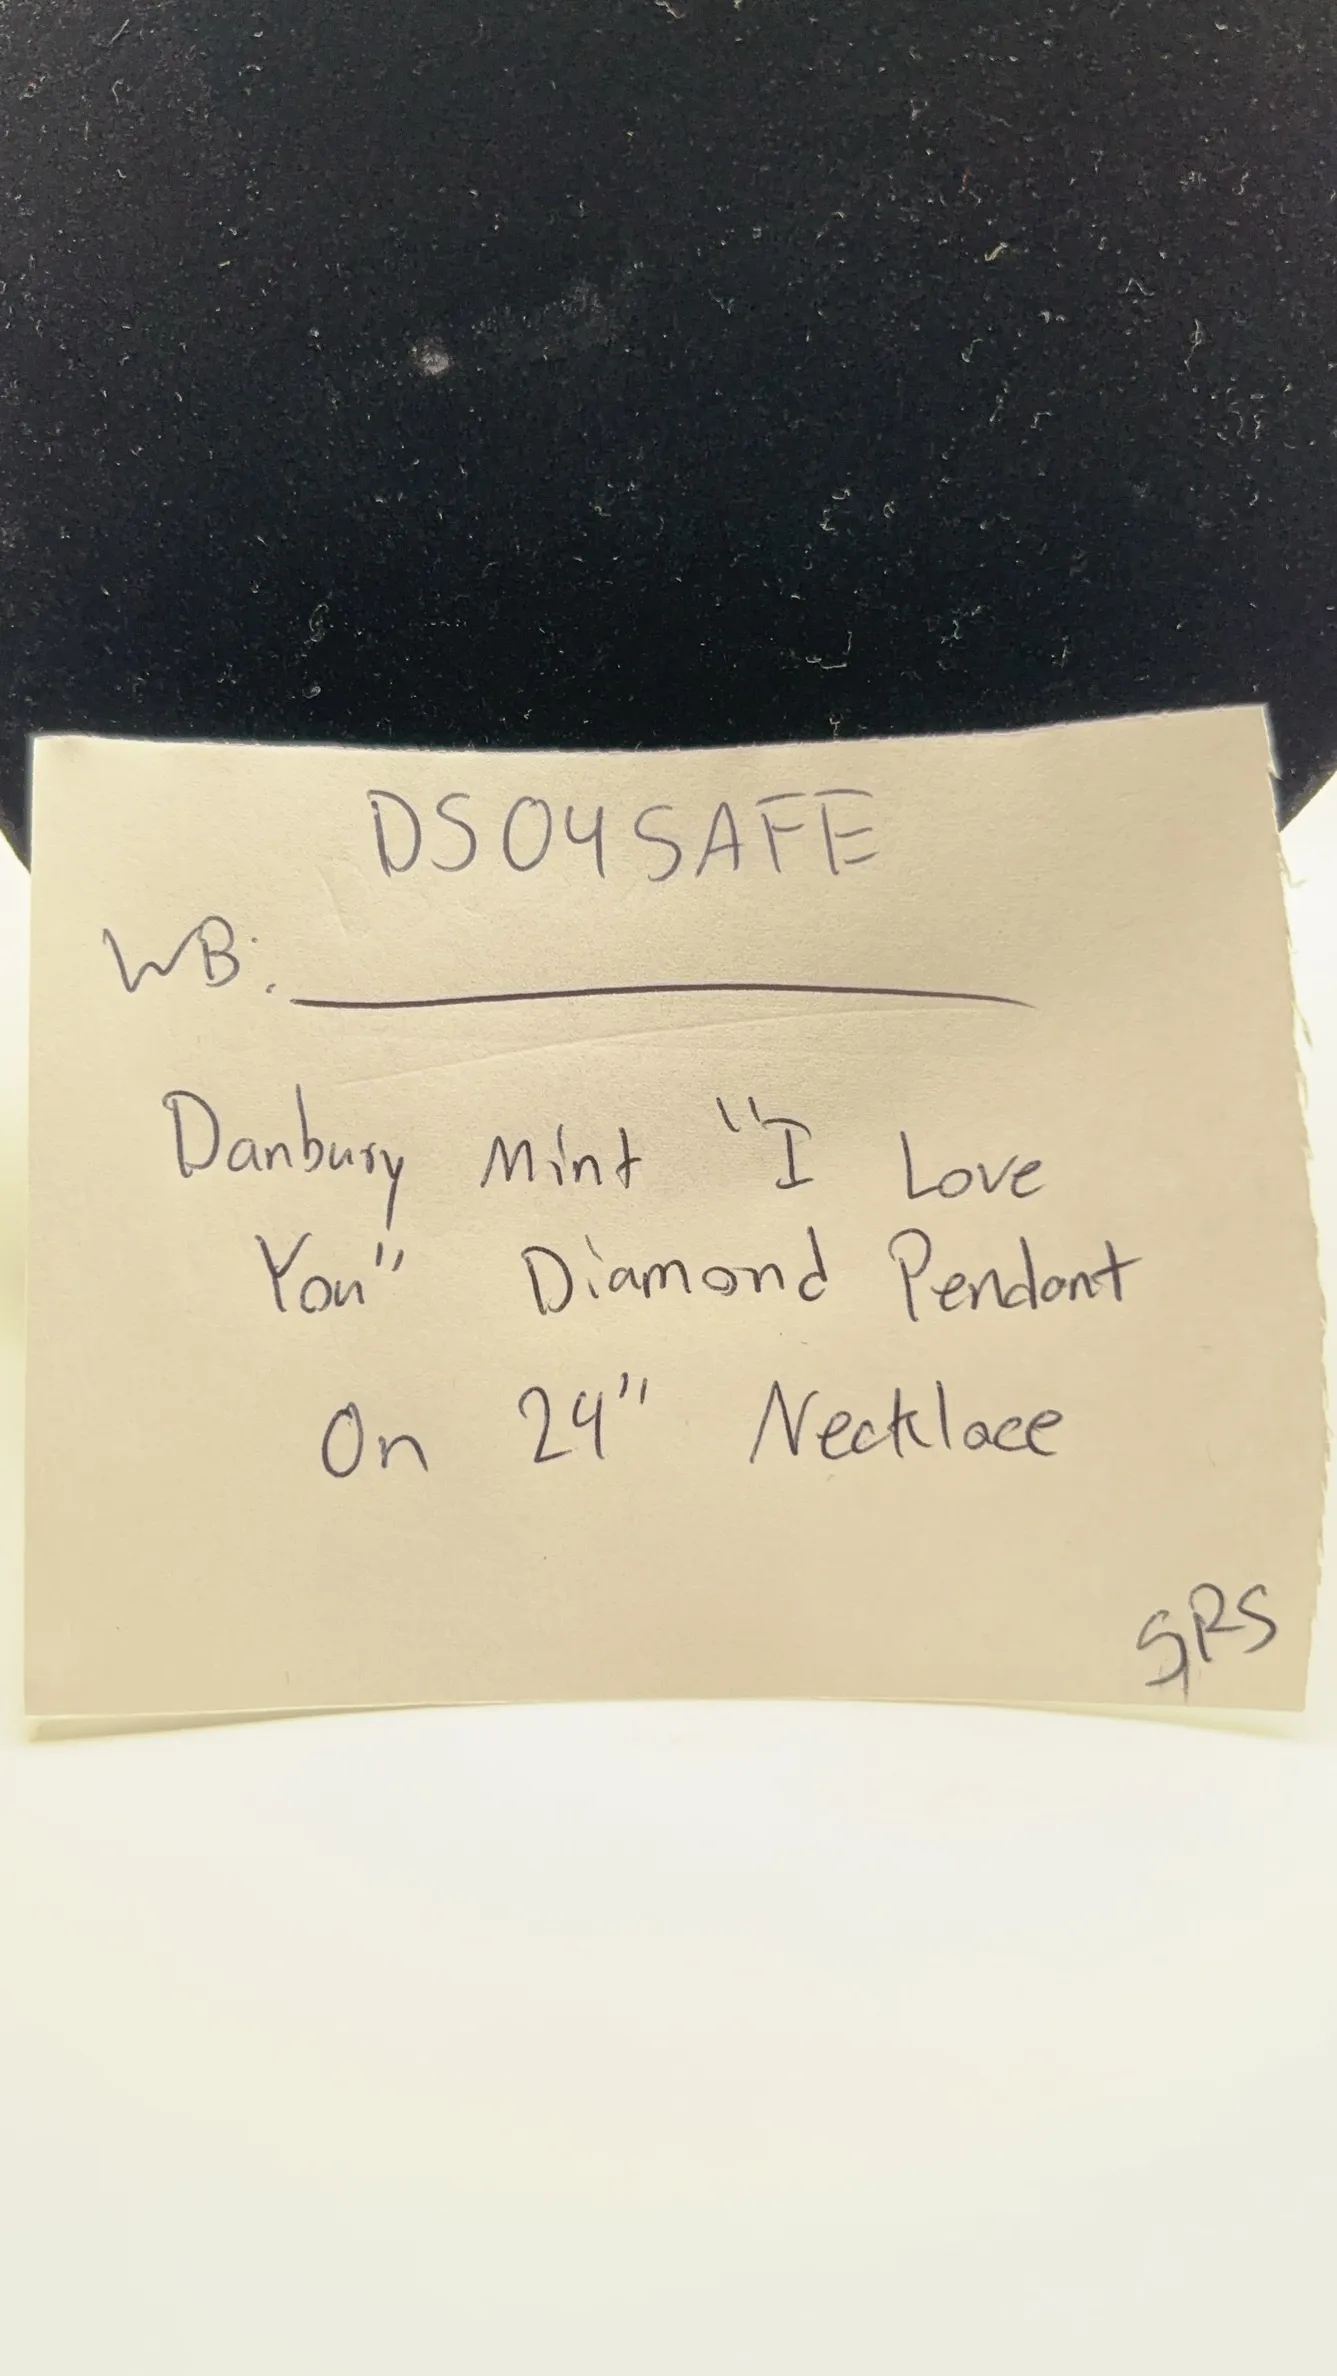 DS04SAFE
WB: ____________
Danbury Mint "I Love
You" Diamond Pendant
On 24" Necklace
SRS